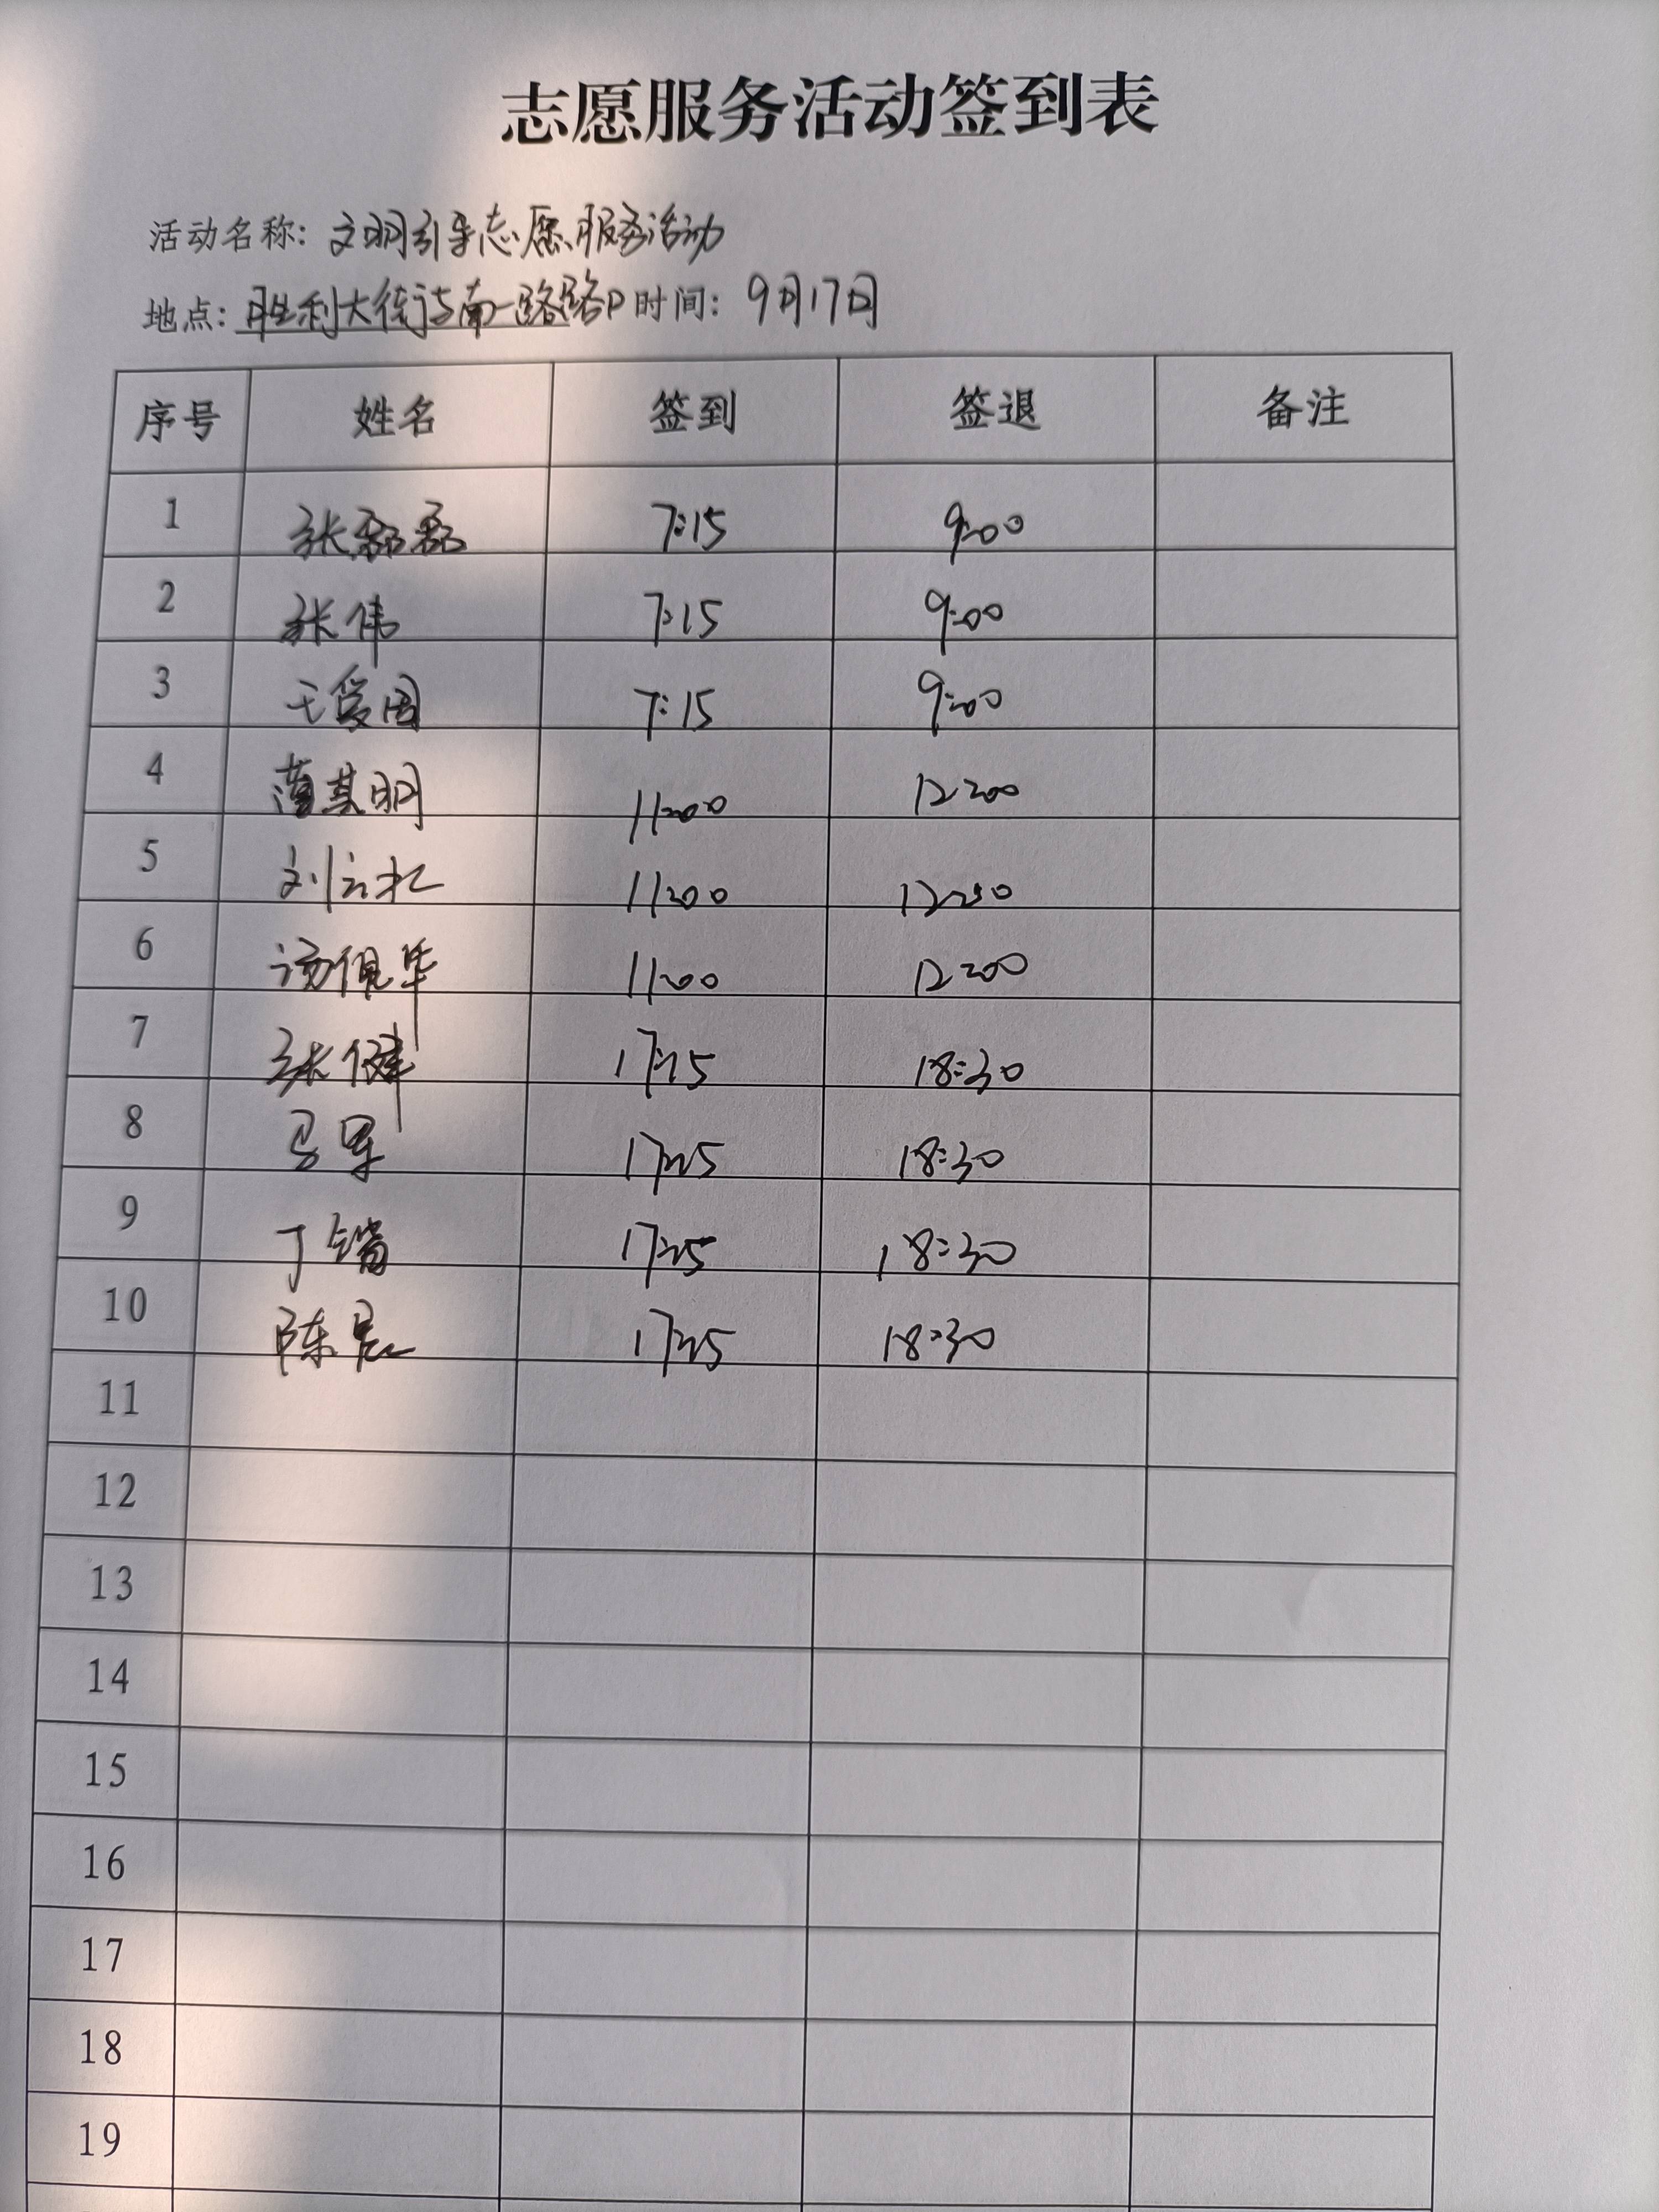 志愿服务活动签到表
活动名称: 文明引导志愿服务活动
地点: 胜利大街与南一路路口 时间: 9月17日
序号 姓名 签到 签退 备注
1 张磊磊 7:15 9:00
2 张伟 7:15 9:00
3 王爱国 7:15 9:00
4 其明 11:00 12:00
5 刘云 11:00 12:00
6 汤佩华 11:00 12:00
7 张健 17:15 18:30
8 马军 17:15 18:30
9 丁 17:15 18:30
10 陈晨 17:15 18:30
11
12
13
14
15
16
17
18
19